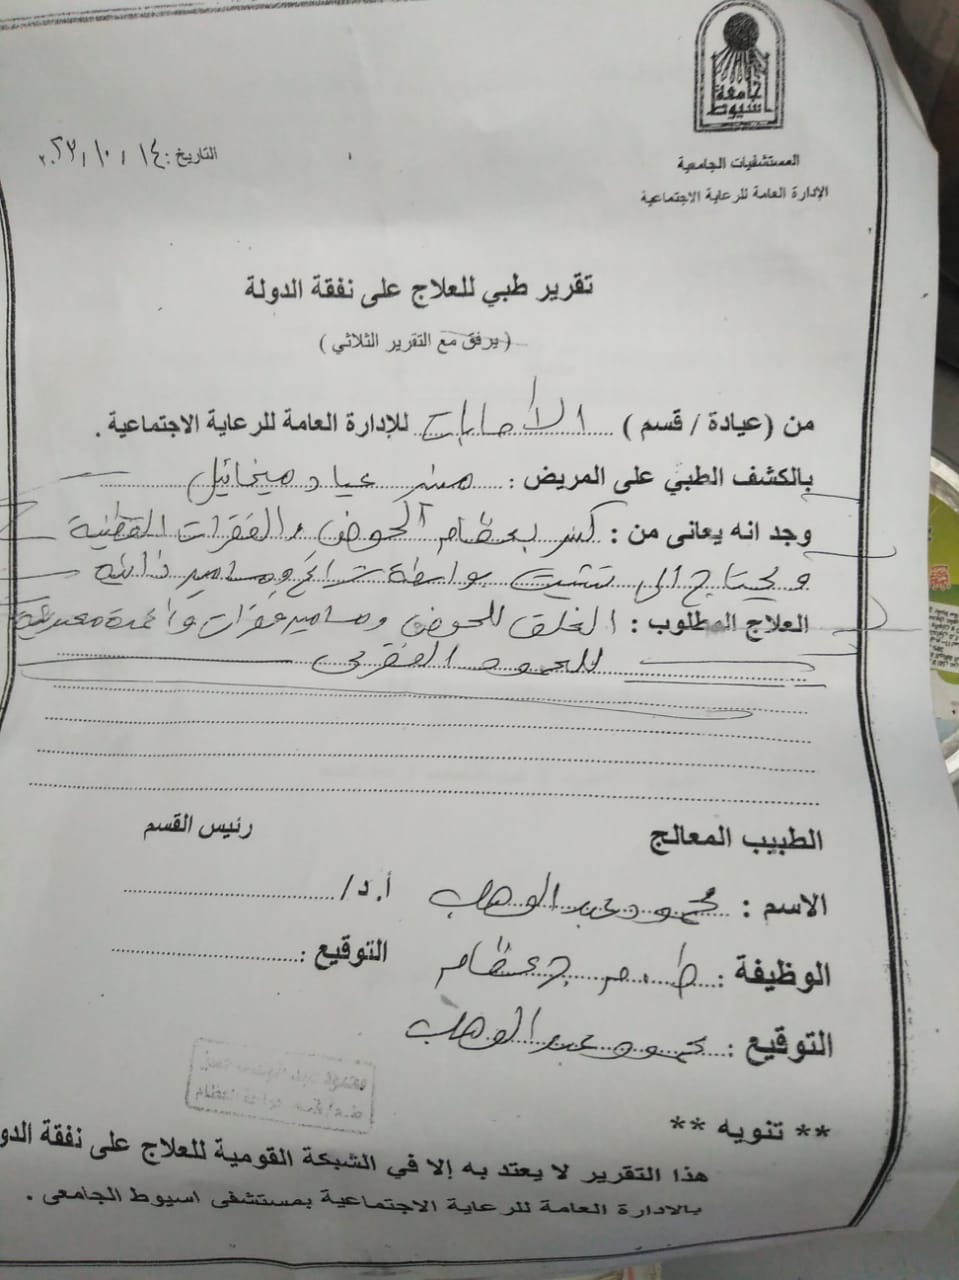 جامعة
اسيوط
المستشفيات الجامعية
الإدارة العامة للرعاية الاجتماعية
التاريخ : ١٤ / ١٠ / ٢٠٢٣
تقرير طبي للعلاج على نفقة الدولة
( يرفق مع التقرير الثلاثي )
من (عيادة / قسم ) الاصابات للإدارة العامة للرعاية الاجتماعية .
بالكشف الطبي على المريض : عياد ميخائيل
وجد انه يعانى من : كسر بعظام الحوض والفقرات القطنية
ويحتاج الى تثبيت بواسطة شرائح ومسامير
العلاج المطلوب : الغلق للحوض ومسامير فقرات واعمدة معدنية
للعمود الفقرى
الطبيب المعالج
رئيس القسم
الاسم : محمود عبد الوهاب
أ.د/
الوظيفة : عظام
التوقيع :
التوقيع : محمود عبد الوهاب
** تنويه **
هذا التقرير لا يعتد به إلا في الشبكة القومية للعلاج على نفقة الدو
بالادارة العامة للرعاية الاجتماعية بمستشفى اسيوط الجامعى .